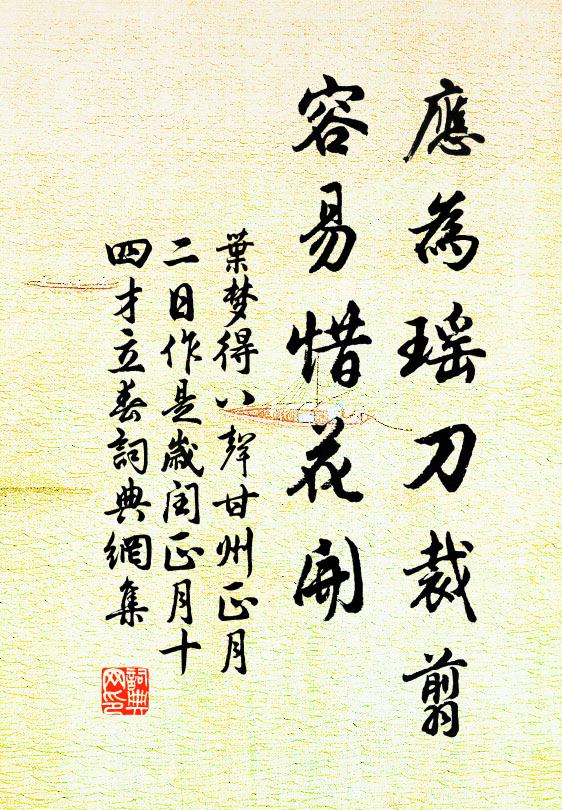 應為瑶刀裁翦
容易惜花開
葉梦得八聲甘州正月
二日作是歲闰正月十
四才立春詞典網集
詞典
网印